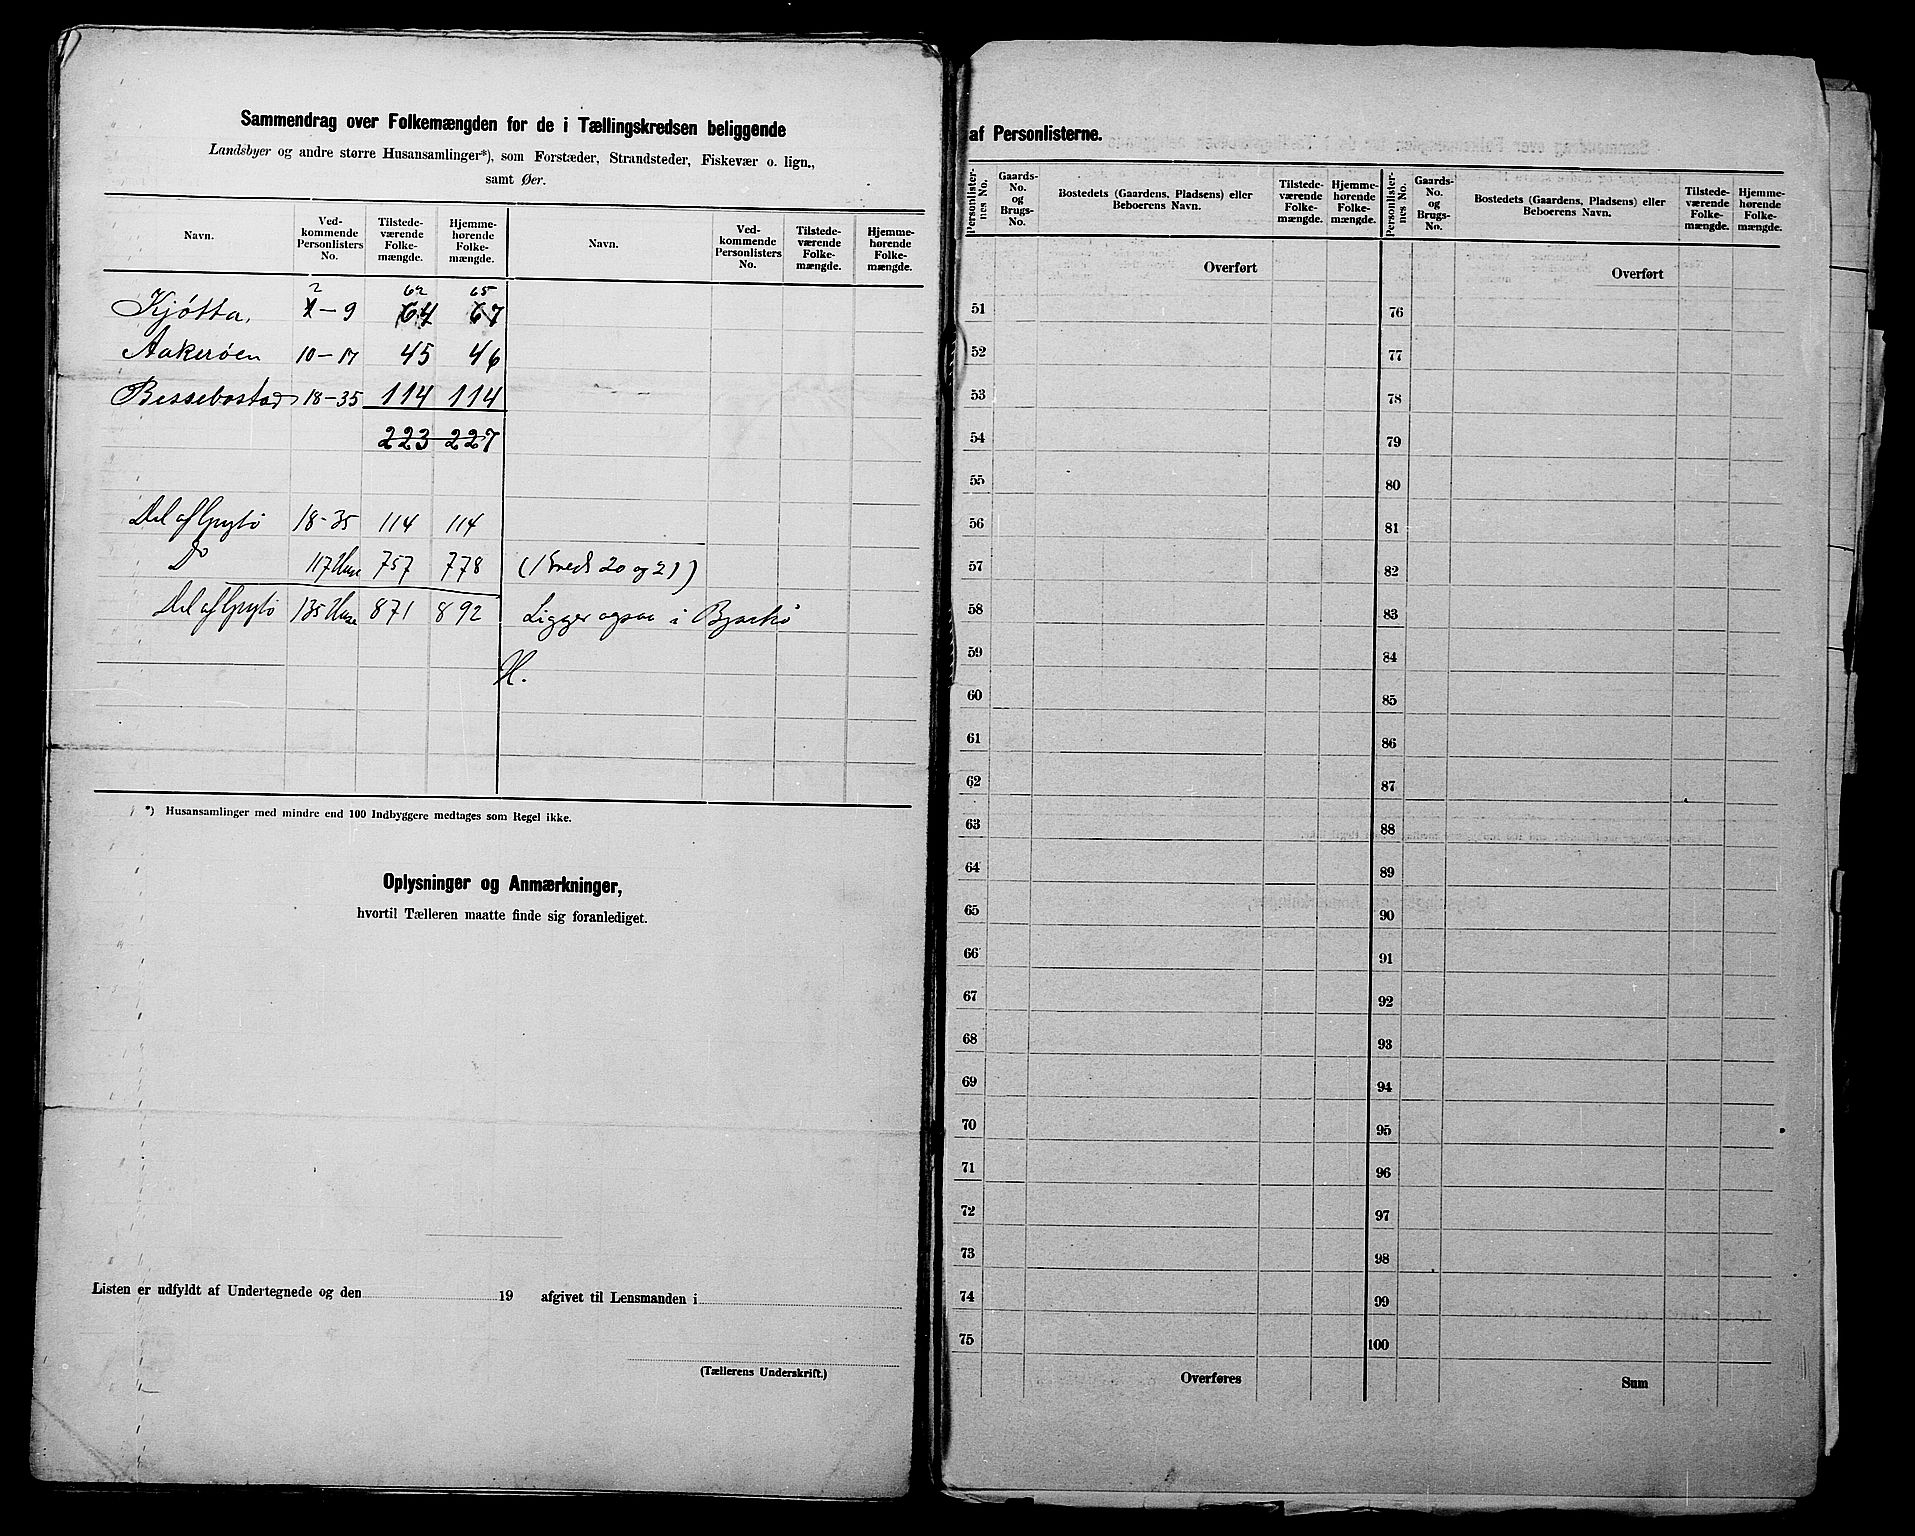 Sammendrag over Folkemængden for de i Tællingskredsen beliggende
Landsbyer og andre større Husansamlinger*), som Forstæder, Strandsteder, Fiskevær o. lign.,
samt Øer.
Navn. Ved-kommende Personlisters No. Tilstede-værende Folke-mængde. Hjemme-hørende Folke-mængde. Navn. Ved-kommende Personlisters No. Tilstede-værende Folke-mængde. Hjemme-hørende Folke-mængde.
2 62 65
Kjøtta, 1-9 64 67
Aakerøen 10-17 45 46
Bessebostad 18-35 114 114
223 227
Del af Grytø 18-35 114 114
Do 117 Huse 757 778 (Kreds 20 og 21)
Del af Grytø 135 Huse 871 892 Ligger ogsaa i Bjarkø
H.
*) Husansamlinger med mindre end 100 Indbyggere medtages som Regel ikke.
Oplysninger og Anmærkninger,
hvortil Tælleren maatte finde sig foranlediget.
Listen er udfyldt af Undertegnede og den 19 afgivet til Lensmanden i
(Tællerens Underskrift.)
af Personlisterne.
Personlister-nes No. Gaards-No. og Brugs-No. Bostedets (Gaardens, Pladsens) eller Beboerens Navn. Tilstede-værende Folke-mængde. Hjemme-hørende Folke-mængde. Personlister-nes No. Gaards-No. og Brugs-No. Bostedets (Gaardens, Pladsens) eller Beboerens Navn. Tilstede-værende Folke-mængde. Hjemme-hørende Folke-mængde.
Overført Overført
51 76
52 77
53 78
54 79
55 80
56 81
57 82
58 83
59 84
60 85
61 86
62 87
63 88
64 89
65 90
66 91
67 92
68 93
69 94
70 95
71 96
72 97
73 98
74 99
75 100
Overføres Sum